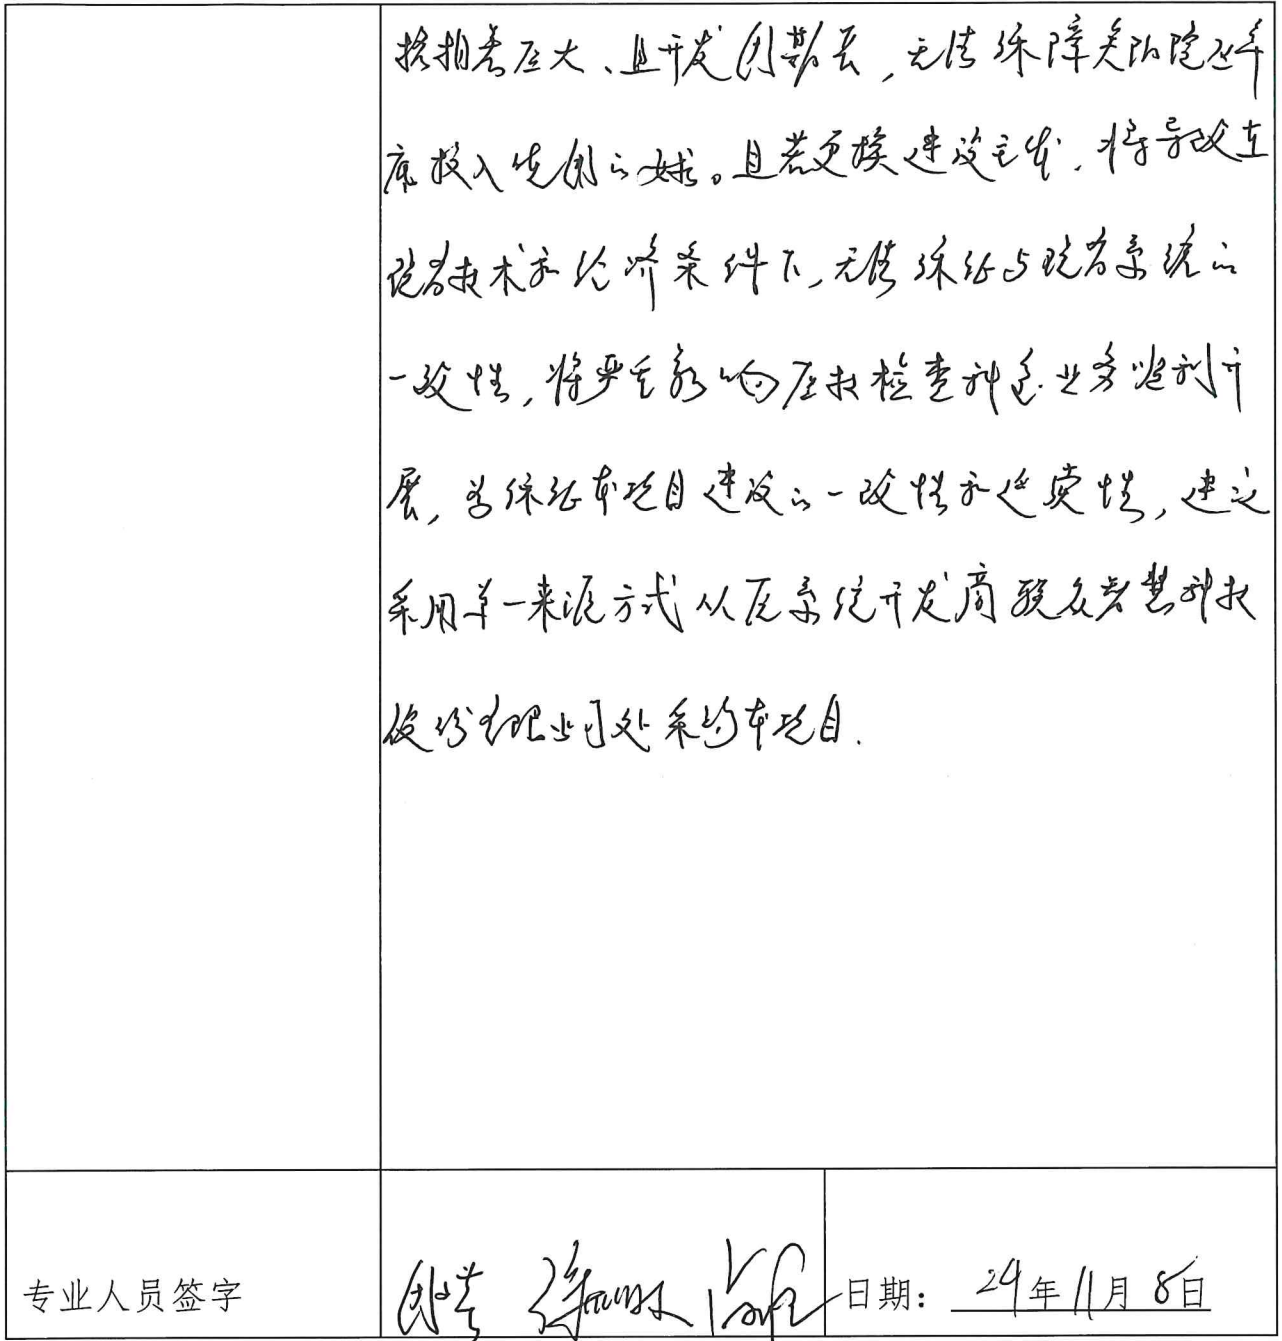 损耗巨大、且开发周期长，无法保障关防院区年
底投入使用的要求。且若更换建设主体，将导致在
现有技术和经济条件下，无法保证与现有系统的
一致性，将严重影响医技检查科室业务顺利开
展，为保证本项目建设的一致性和延续性，建议
采用单一来源方式从原系统开发商联众智慧科技
股份有限公司处采购本项目.
专业人员签字
日期：24年11月8日